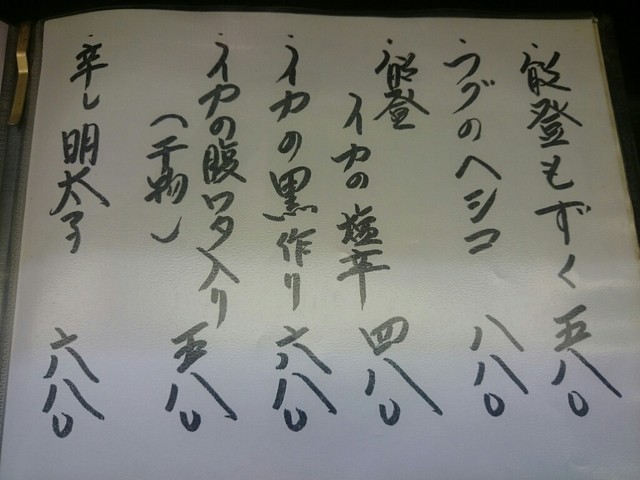 ・能登もずく 五八〇
・フグのヘシコ 八八〇
・能登
イカの塩辛 四八〇
・イカの黒作り 六八〇
・イカの腹ワタ入り
(干物) 五八〇
・辛し明太子 六八〇